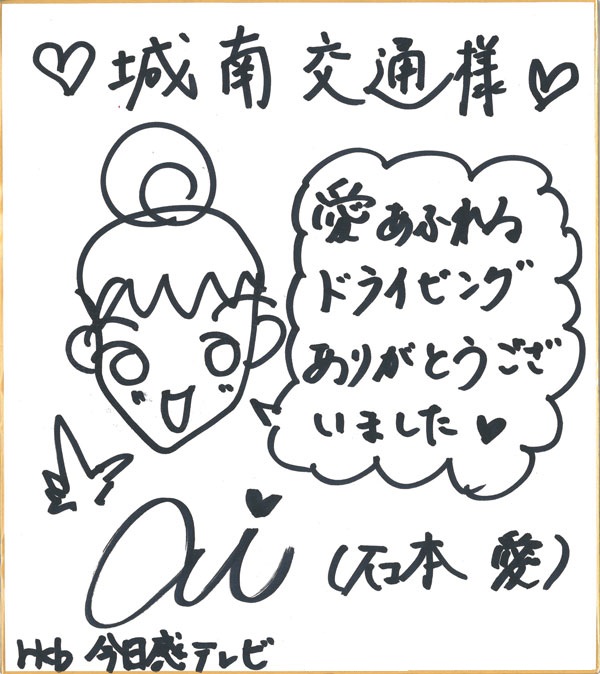 ♡城南交通様♡
愛あふれる
ドライビング
ありがとうござ
いました♥
ai
(石本 愛)
rkb 今日感テレビ